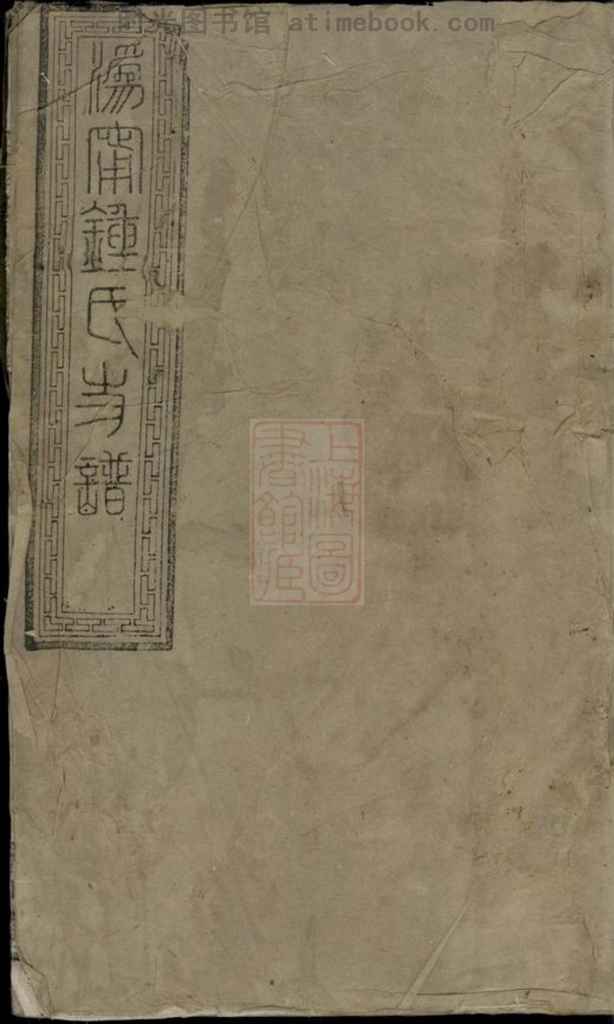 时光图书馆 atimebook.com
溈甯鍾氏支譜
上海圖
書館藏